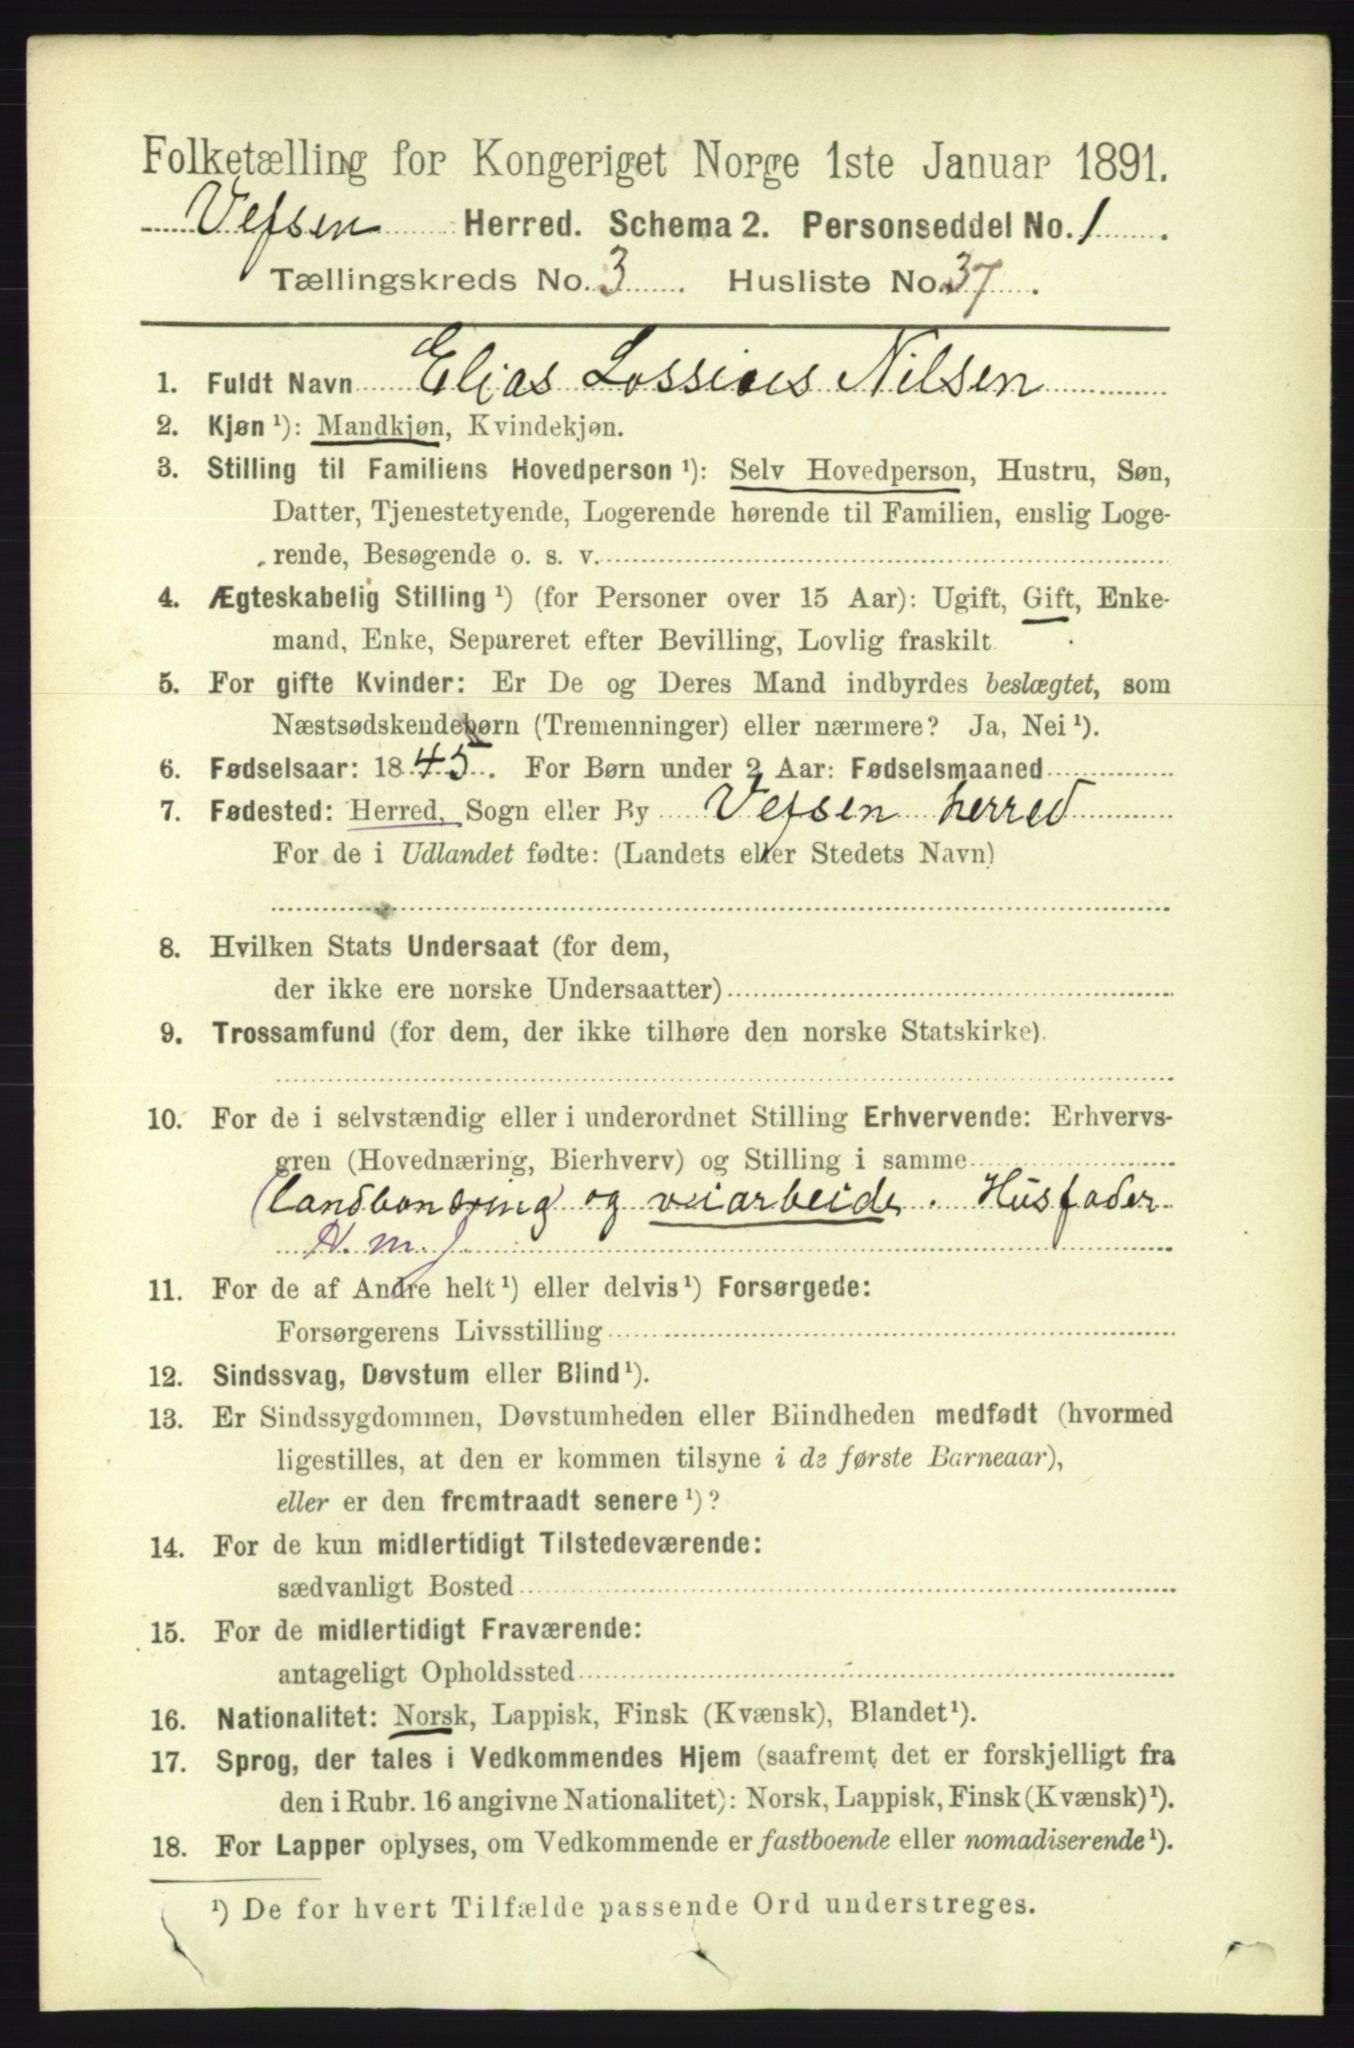 Folketælling for Kongeriget Norge 1ste Januar 1891.
Vefsen Herred. Schema 2. Personseddel No. 1.
Tællingskreds No. 3. Husliste No. 37.
1. Fuldt Navn Elias Lossius Nilsen
2. Kjøn ¹): Mandkjøn, Kvindekjøn.
3. Stilling til Familiens Hovedperson ¹): Selv Hovedperson, Hustru, Søn,
Datter, Tjenestetyende, Logerende hørende til Familien, enslig Loge-
rende, Besøgende o. s. v.
4. Ægteskabelig Stilling ¹) (for Personer over 15 Aar): Ugift, Gift, Enke-
mand, Enke, Separeret efter Bevilling, Lovlig fraskilt
5. For gifte Kvinder: Er De og Deres Mand indbyrdes beslægtet, som
Næstsødskendebørn (Tremenninger) eller nærmere? Ja, Nei ¹).
6. Fødselsaar: 1845. For Børn under 2 Aar: Fødselsmaaned
7. Fødested: Herred, Sogn eller By Vefsen herred
For de i Udlandet fødte: (Landets eller Stedets Navn)
8. Hvilken Stats Undersaat (for dem,
der ikke ere norske Undersaatter)
9. Trossamfund (for dem, der ikke tilhøre den norske Statskirke).
10. For de i selvstændig eller i underordnet Stilling Erhvervende: Erhvervs-
gren (Hovednæring, Bierhverv) og Stilling i samme
(landbonæring) og veiarbeide. Husfader
H. m. J.
11. For de af Andre helt ¹) eller delvis ¹) Forsørgede:
Forsørgerens Livsstilling
12. Sindssvag, Døvstum eller Blind ¹).
13. Er Sindssygdommen, Døvstumheden eller Blindheden medfødt (hvormed
ligestilles, at den er kommen tilsyne i de første Barneaar),
eller er den fremtraadt senere ¹)?
14. For de kun midlertidigt Tilstedeværende:
sædvanligt Bosted
15. For de midlertidigt Fraværende:
antageligt Opholdssted
16. Nationalitet: Norsk, Lappisk, Finsk (Kvænsk), Blandet ¹).
17. Sprog, der tales i Vedkommendes Hjem (saafremt det er forskjelligt fra
den i Rubr. 16 angivne Nationalitet): Norsk, Lappisk, Finsk (Kvænsk) ¹).
18. For Lapper oplyses, om Vedkommende er fastboende eller nomadiserende ¹).
¹) De for hvert Tilfælde passende Ord understreges.